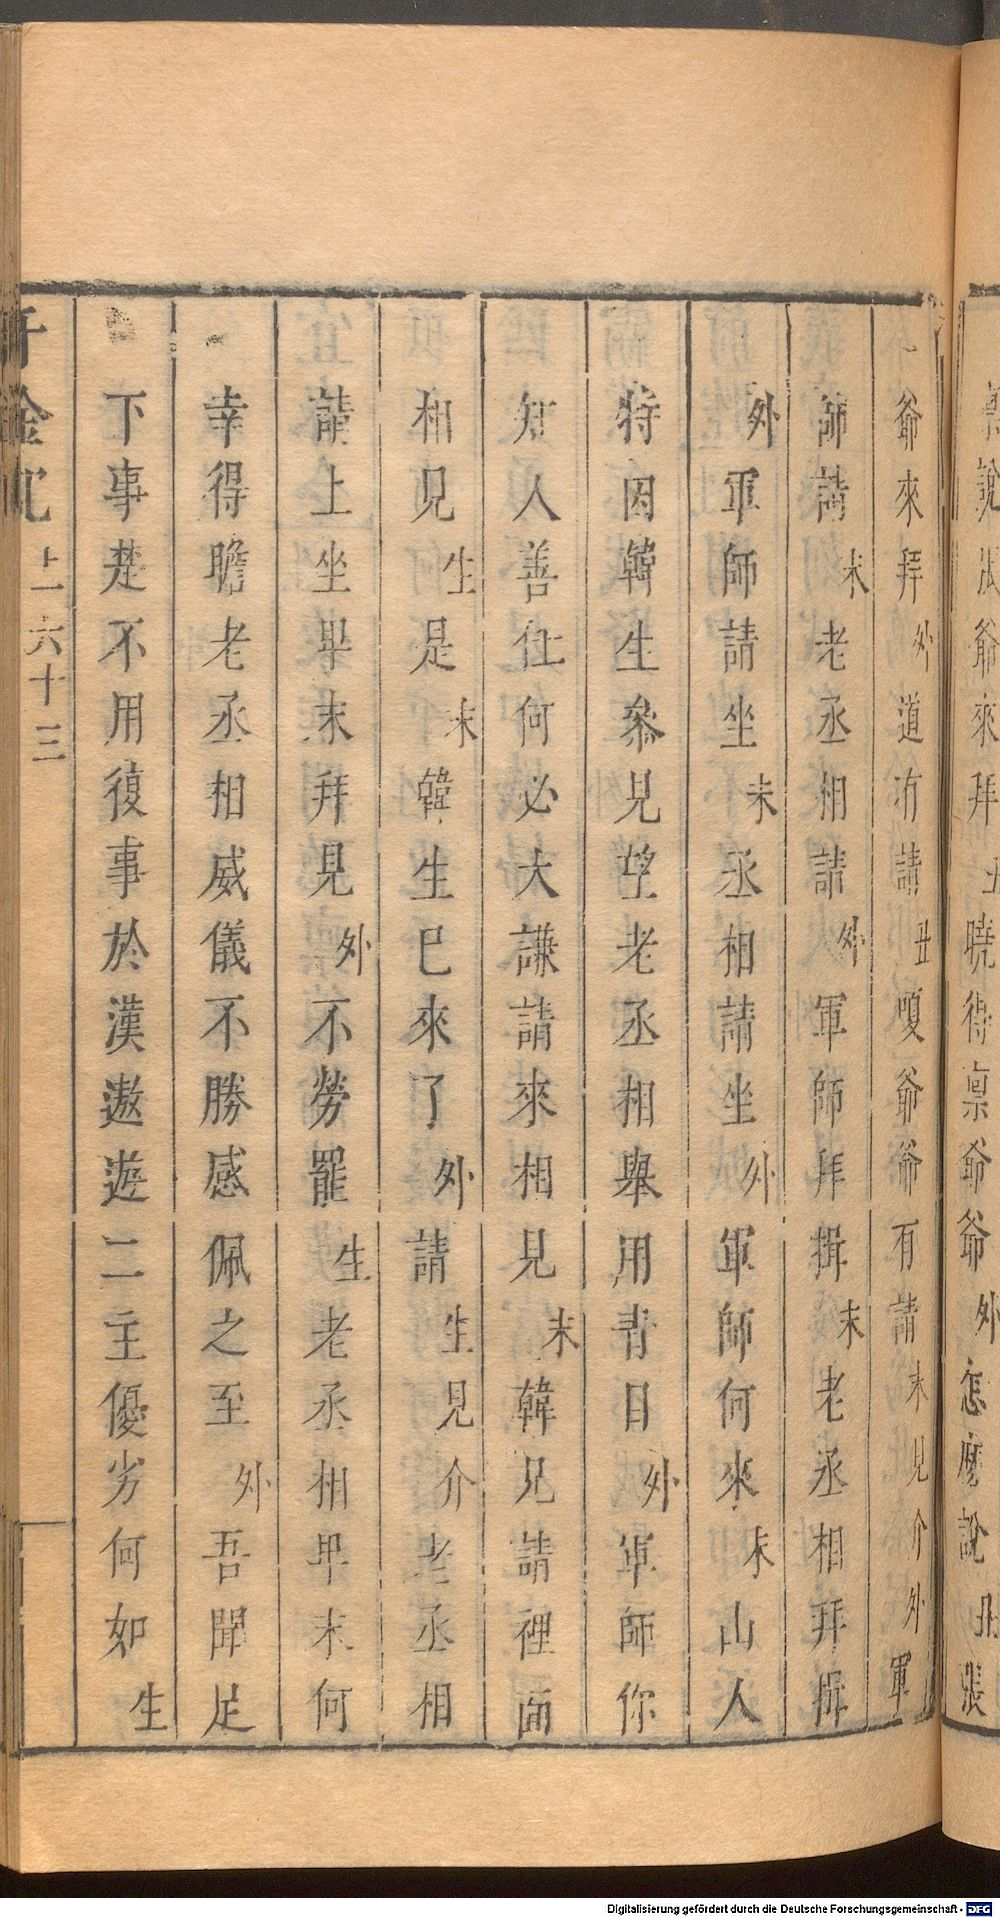 張爺來拜丑曉得稟爺爺外怎麽說丑張
爺來拜外道有請丑嗄爺爺有請末見介外軍
師請末老丞相請外軍師拜揖末老丞相拜揖
外軍師請坐末丞相請坐外軍師何來末山人
特因韓生參見望老丞相舉用青目外軍師你
知人善仕何必大謙請來相見末韓兄請裡面
相見生是末韓生已來了外請生見介老丞相
請上坐畢末拜見外不勞罷生老丞相畢末何
幸得瞻老丞相威儀不勝感佩之至外吾聞足
下事楚不用復事於漢遨遊二主優劣何如生
千金記
上 六十三
Digitalisierung gefördert durch die Deutsche Forschungsgemeinschaft - DFG